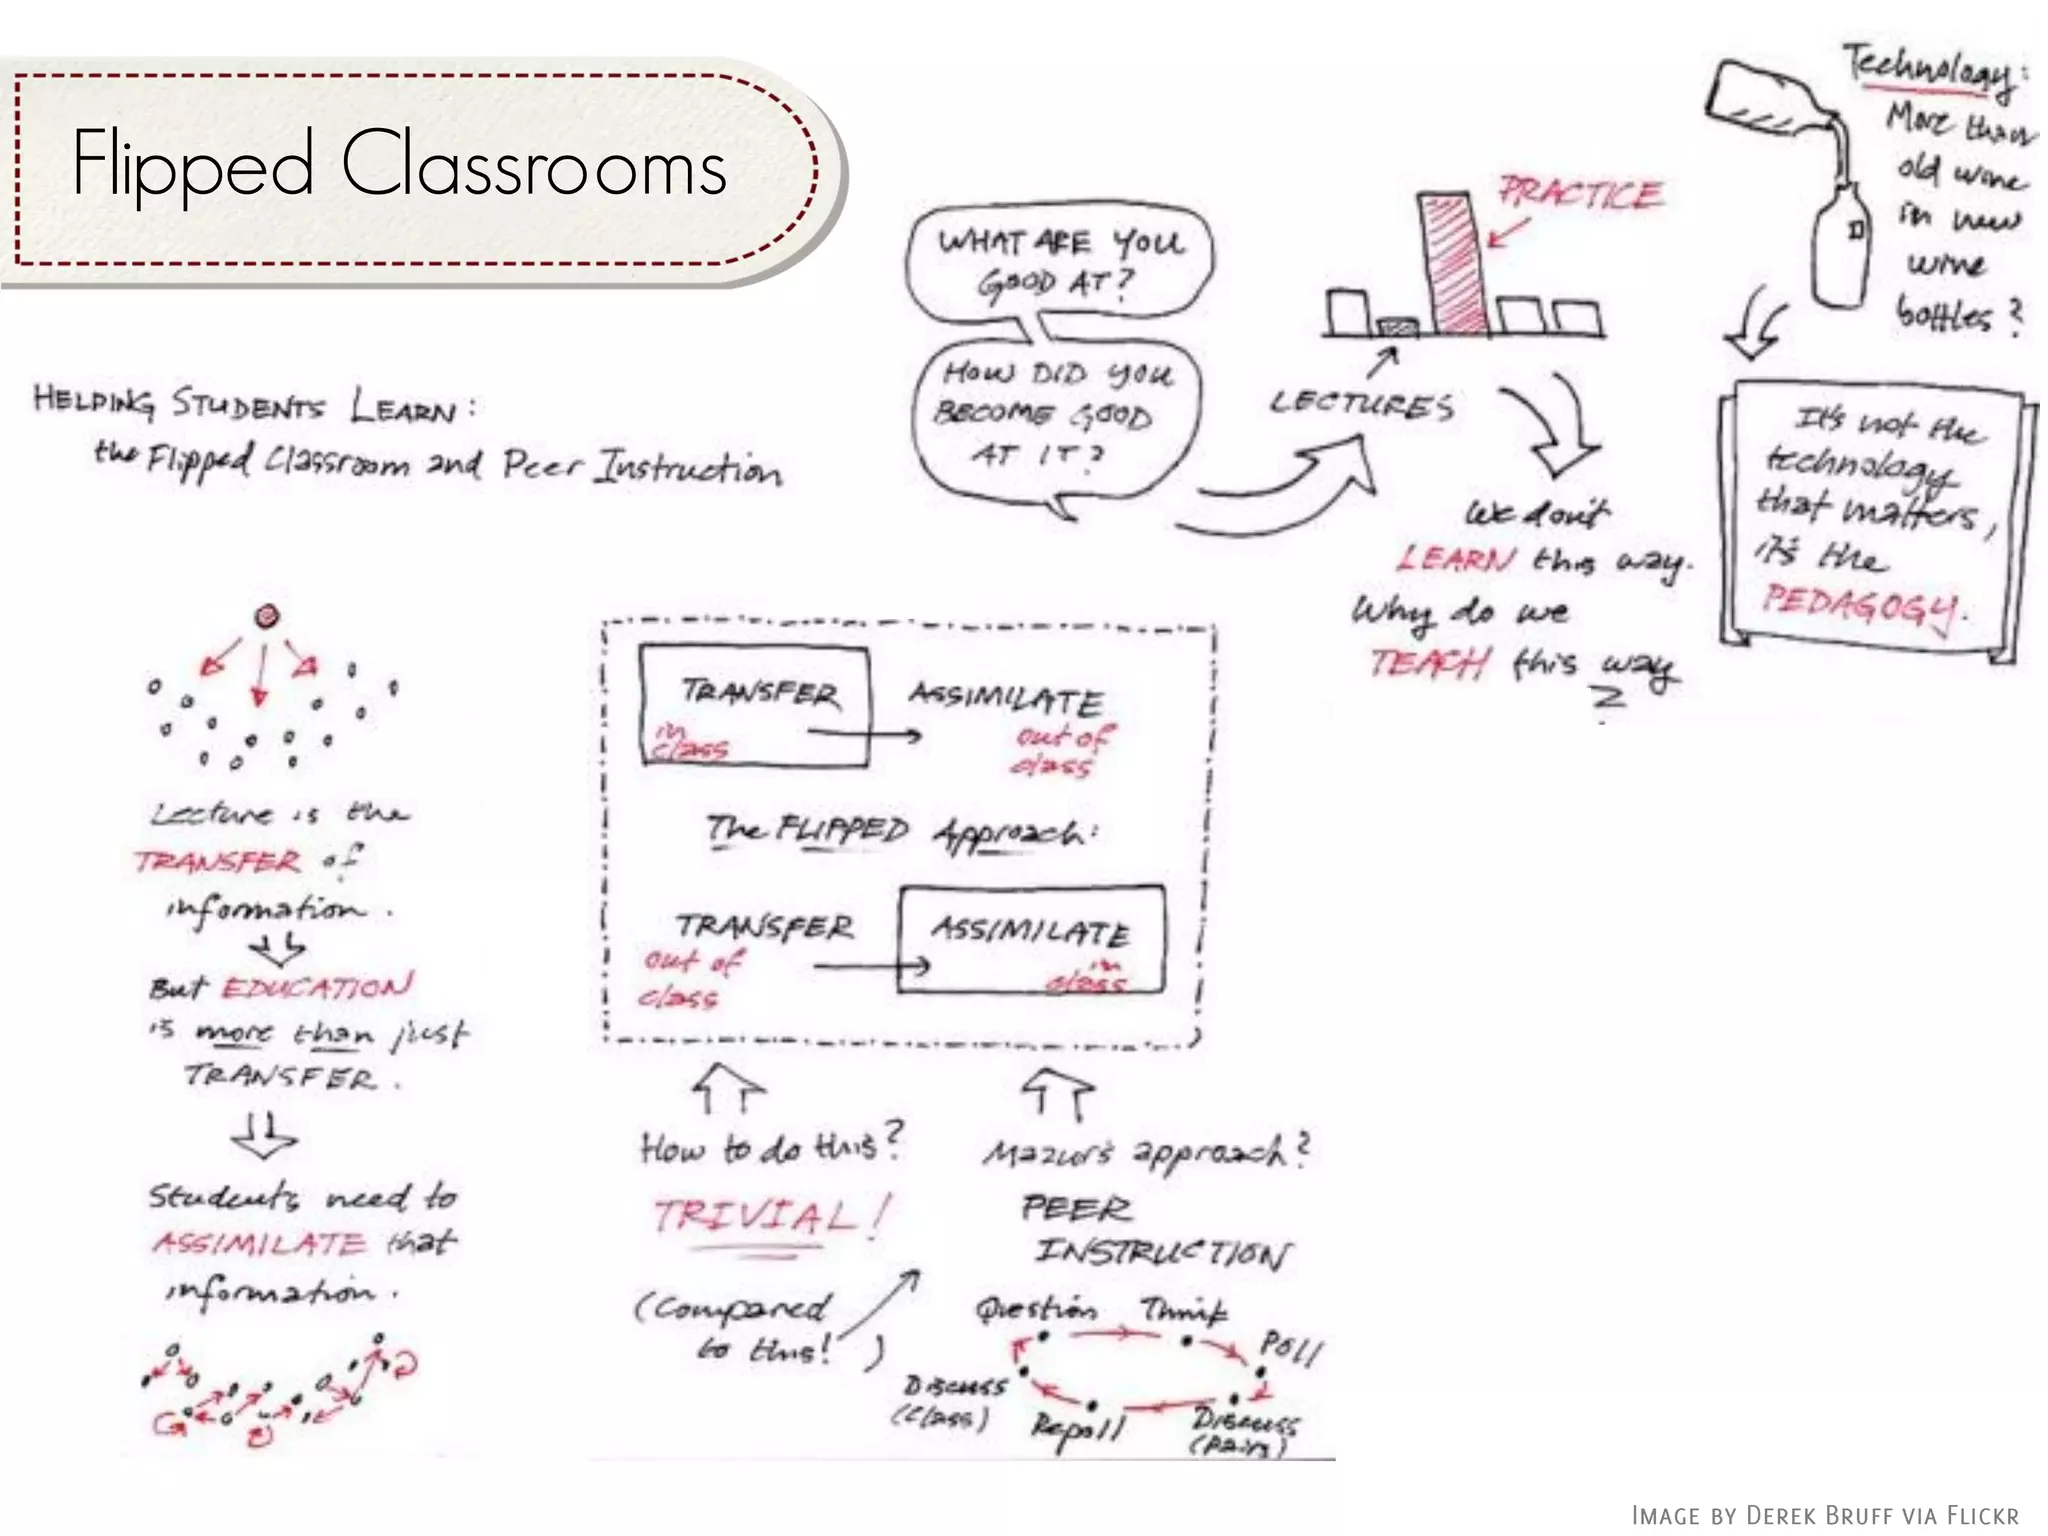 Flipped Classrooms
HELPING STUDENTS LEARN:
the Flipped Classroom and Peer Instruction
WHAT ARE YOU
GOOD AT?
HOW DID YOU
BECOME GOOD
AT IT?
PRACTICE
LECTURES
We don't
LEARN this way.
Why do we
TEACH this way
?
Technology:
More than
old wine
in new
wine
bottles?
It's not the
technology
that matters,
it's the
PEDAGOGY.
Lecture is the
TRANSFER of
information.
But EDUCATION
is more than just
TRANSFER.
Students need to
ASSIMILATE that
information.
TRANSFER
in
class
ASSIMILATE
out of
class
The FLIPPED Approach:
TRANSFER
out of
class
ASSIMILATE
in
class
How to do this?
TRIVIAL!
(Compared
to this! )
Mazur's approach?
PEER
INSTRUCTION
Question
Think
Poll
Discuss
(Pairs)
Repoll
Discuss
(Class)
IMAGE BY DEREK BRUFF VIA FLICKR